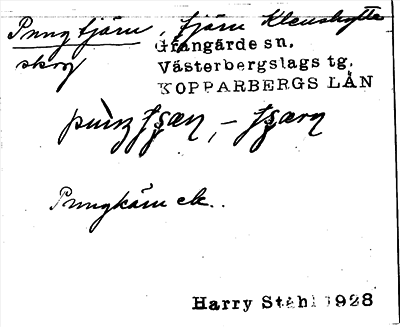 Pungtjärn, tjärn Klenshytte
skog
Grangärde sn.
Västerbergslags tg.
KOPPARBERGS LÄN
Pungkärn ek.
Harry Ståhl 1928